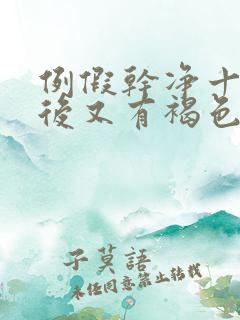 例假幹净十
後又有褐色
子莫語
未经同意禁止转载